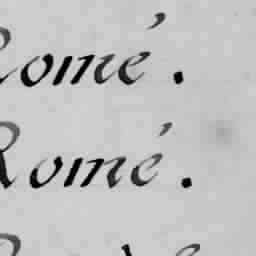 Romé.
Romé.